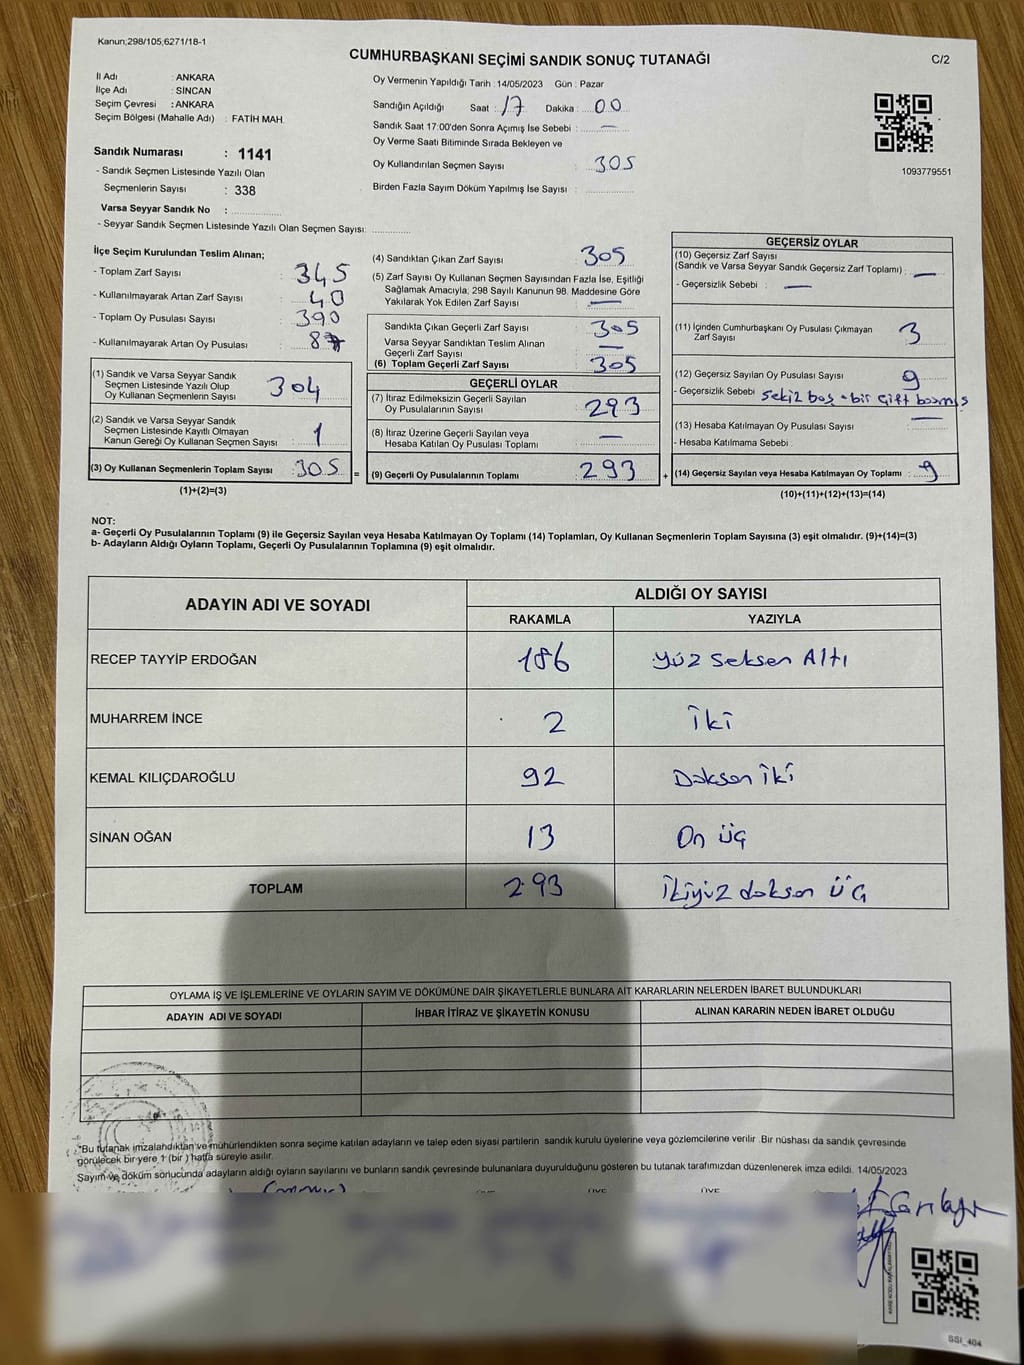 Kanun;298/105;6271/18-1
CUMHURBAŞKANI SEÇİMİ SANDIK SONUÇ TUTANAĞI
C/2
İl Adı : ANKARA
İlçe Adı : SİNCAN
Seçim Çevresi : ANKARA
Seçim Bölgesi (Mahalle Adı) : FATİH MAH.
Oy Vermenin Yapıldığı Tarih :14/05/2023 Gün : Pazar
Sandığın Açıldığı Saat : 17 Dakika : 00
Sandık Saat 17:00'den Sonra Açımış İse Sebebi : —
Oy Verme Saati Bitiminde Sırada Bekleyen ve
Oy Kullandırılan Seçmen Sayısı : 305
Birden Fazla Sayım Döküm Yapılmış İse Sayısı :
1093779551
Sandık Numarası : 1141
- Sandık Seçmen Listesinde Yazılı Olan
Seçmenlerin Sayısı : 338
Varsa Seyyar Sandık No :
- Seyyar Sandık Seçmen Listesinde Yazılı Olan Seçmen Sayısı:
İlçe Seçim Kurulundan Teslim Alınan;
- Toplam Zarf Sayısı : 345
- Kullanılmayarak Artan Zarf Sayısı : 40
- Toplam Oy Pusulası Sayısı : 390
- Kullanılmayarak Artan Oy Pusulası :
(1) Sandık ve Varsa Seyyar Sandık
Seçmen Listesinde Yazılı Olup
Oy Kullanan Seçmenlerin Sayısı : 304
(2) Sandık ve Varsa Seyyar Sandık
Seçmen Listesinde Kayıtlı Olmayan
Kanun Gereği Oy Kullanan Seçmen Sayısı : 1
(3) Oy Kullanan Seçmenlerin Toplam Sayısı : 305 =
(1)+(2)=(3)
(4) Sandıktan Çıkan Zarf Sayısı : 305
(5) Zarf Sayısı Oy Kullanan Seçmen Sayısından Fazla İse, Eşitliği
Sağlamak Amacıyla, 298 Sayılı Kanunun 98. Maddesine Göre
Yakılarak Yok Edilen Zarf Sayısı : —
Sandıkta Çıkan Geçerli Zarf Sayısı : 305
Varsa Seyyar Sandıktan Teslim Alınan
Geçerli Zarf Sayısı : —
(6) Toplam Geçerli Zarf Sayısı : 305
GEÇERLİ OYLAR
(7) İtiraz Edilmeksizin Geçerli Sayılan
Oy Pusulalarının Sayısı : 293
(8) İtiraz Üzerine Geçerli Sayılan veya
Hesaba Katılan Oy Pusulası Toplamı : —
(9) Geçerli Oy Pusulalarının Toplamı : 293 +
GEÇERSİZ OYLAR
(10) Geçersiz Zarf Sayısı
(Sandık ve Varsa Seyyar Sandık Geçersiz Zarf Toplamı) : —
- Geçersizlik Sebebi : —
(11) İçinden Cumhurbaşkanı Oy Pusulası Çıkmayan
Zarf Sayısı : 3
(12) Geçersiz Sayılan Oy Pusulası Sayısı : 9
- Geçersizlik Sebebi : sekiz boş - bir çift basmış
(13) Hesaba Katılmayan Oy Pusulası Sayısı : —
- Hesaba Katılmama Sebebi :
(14) Geçersiz Sayılan veya Hesaba Katılmayan Oy Toplamı : 9
(10)+(11)+(12)+(13)=(14)
NOT:
a- Geçerli Oy Pusulalarının Toplamı (9) ile Geçersiz Sayılan veya Hesaba Katılmayan Oy Toplamı (14) Toplamları, Oy Kullanan Seçmenlerin Toplam Sayısına (3) eşit olmalıdır. (9)+(14)=(3)
b- Adayların Aldığı Oyların Toplamı, Geçerli Oy Pusulalarının Toplamına (9) eşit olmalıdır.
ADAYIN ADI VE SOYADI
ALDIĞI OY SAYISI
RAKAMLA YAZIYLA
RECEP TAYYİP ERDOĞAN 186 Yüz Seksen Altı
MUHARREM İNCE 2 İki
KEMAL KILIÇDAROĞLU 92 Doksan iki
SİNAN OĞAN 13 On üç
TOPLAM 293 İkiyüz doksan üç
OYLAMA İŞ VE İŞLEMLERİNE VE OYLARIN SAYIM VE DÖKÜMÜNE DAİR ŞİKAYETLERLE BUNLARA AİT KARARLARIN NELERDEN İBARET BULUNDUKLARI
ADAYIN ADI VE SOYADI İHBAR İTİRAZ VE ŞİKAYETİN KONUSU ALINAN KARARIN NEDEN İBARET OLDUĞU
*Bu tutanak imzalandıktan ve mühürlendikten sonra seçime katılan adayların ve talep eden siyasi partilerin sandık kurulu üyelerine veya gözlemcilerine verilir. Bir nüshası da sandık çevresinde
görülecek bir yere 1 (bir) hafta süreyle asılır.
Sayım ve döküm sonucunda adayların aldığı oyların sayılarını ve bunların sandık çevresinde bulunanlara duyurulduğunu gösteren bu tutanak tarafımızdan düzenlenerek imza edildi. 14/05/2023
ÜYE ÜYE ÜYE
SSI_404